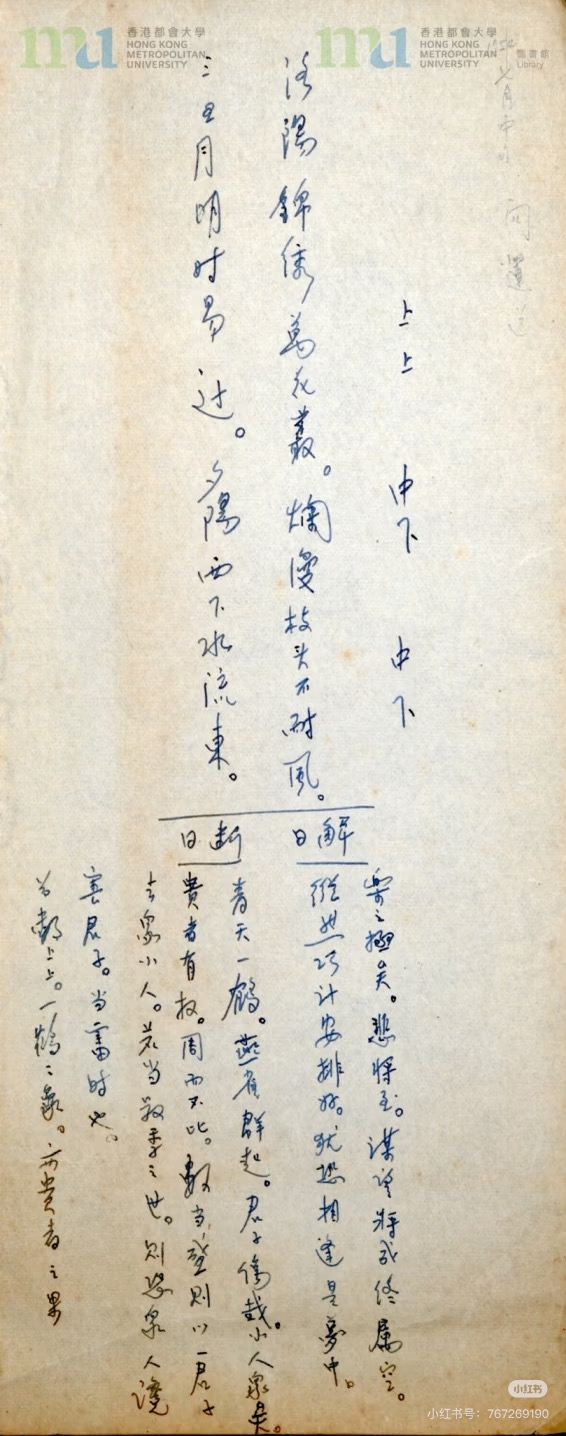 香港都會大學
HONG KONG
METROPOLITAN
UNIVERSITY
香港都會大學
HONG KONG
METROPOLITAN
UNIVERSITY
圖書館
Library
七月中
上上 中下 中下
洛陽錦绣萬花叢。爛漫枝头不耐風。
三五月明时易过。夕陽西下水流東。
解曰
樂之極矣。悲將至。謀望將成终屬空。
縱然巧计安排好。犹恐相逢是夢中。
断曰
青天一鶴。燕雀群起。君子傷哉。小人众矣。
貴者有权。周而不比。數当盛则以一君子
去众小人。若当叔季之世。则恐众人讒
害君子。当富时也。
为數上上。一鶴之象。亦贵者之
小红书
小红书号：767269190